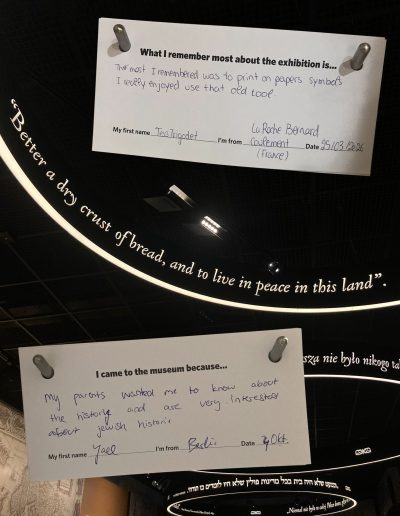 What I remember most about the exhibition is...
The most I remembered was to print on papers symbols
I really enjoyed use that old tool.
La Roche Bernard
My first name Tea I'm from Date 25/03/2026
(France)
“Better a dry crust of bread, and to live in peace in this land”.
sza nie było nikogo
I came to the museum because...
My parents wanted me to know about
the history and are very interested
about jewish history
My first name Yael I'm from Berlin Date Okt.